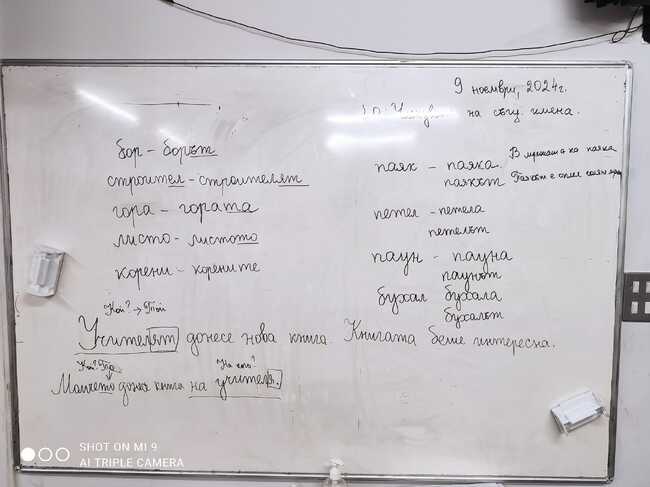 9 ноември, 2024г.
на същ. имена.
бор - борът
строител - строителят
гора - гората
листо - листото
корени - корените
паяк - паяка. В мрежата на паяка
паякът Паякът е
петел - петела
петелът
паун - пауна
паунът
бухал бухала
бухалът
Кой? → Той
Учителят донесе нова книга. Книгата беше интересна.
На кого?
Момчето книга на учителя.
SHOT ON MI 9
AI TRIPLE CAMERA